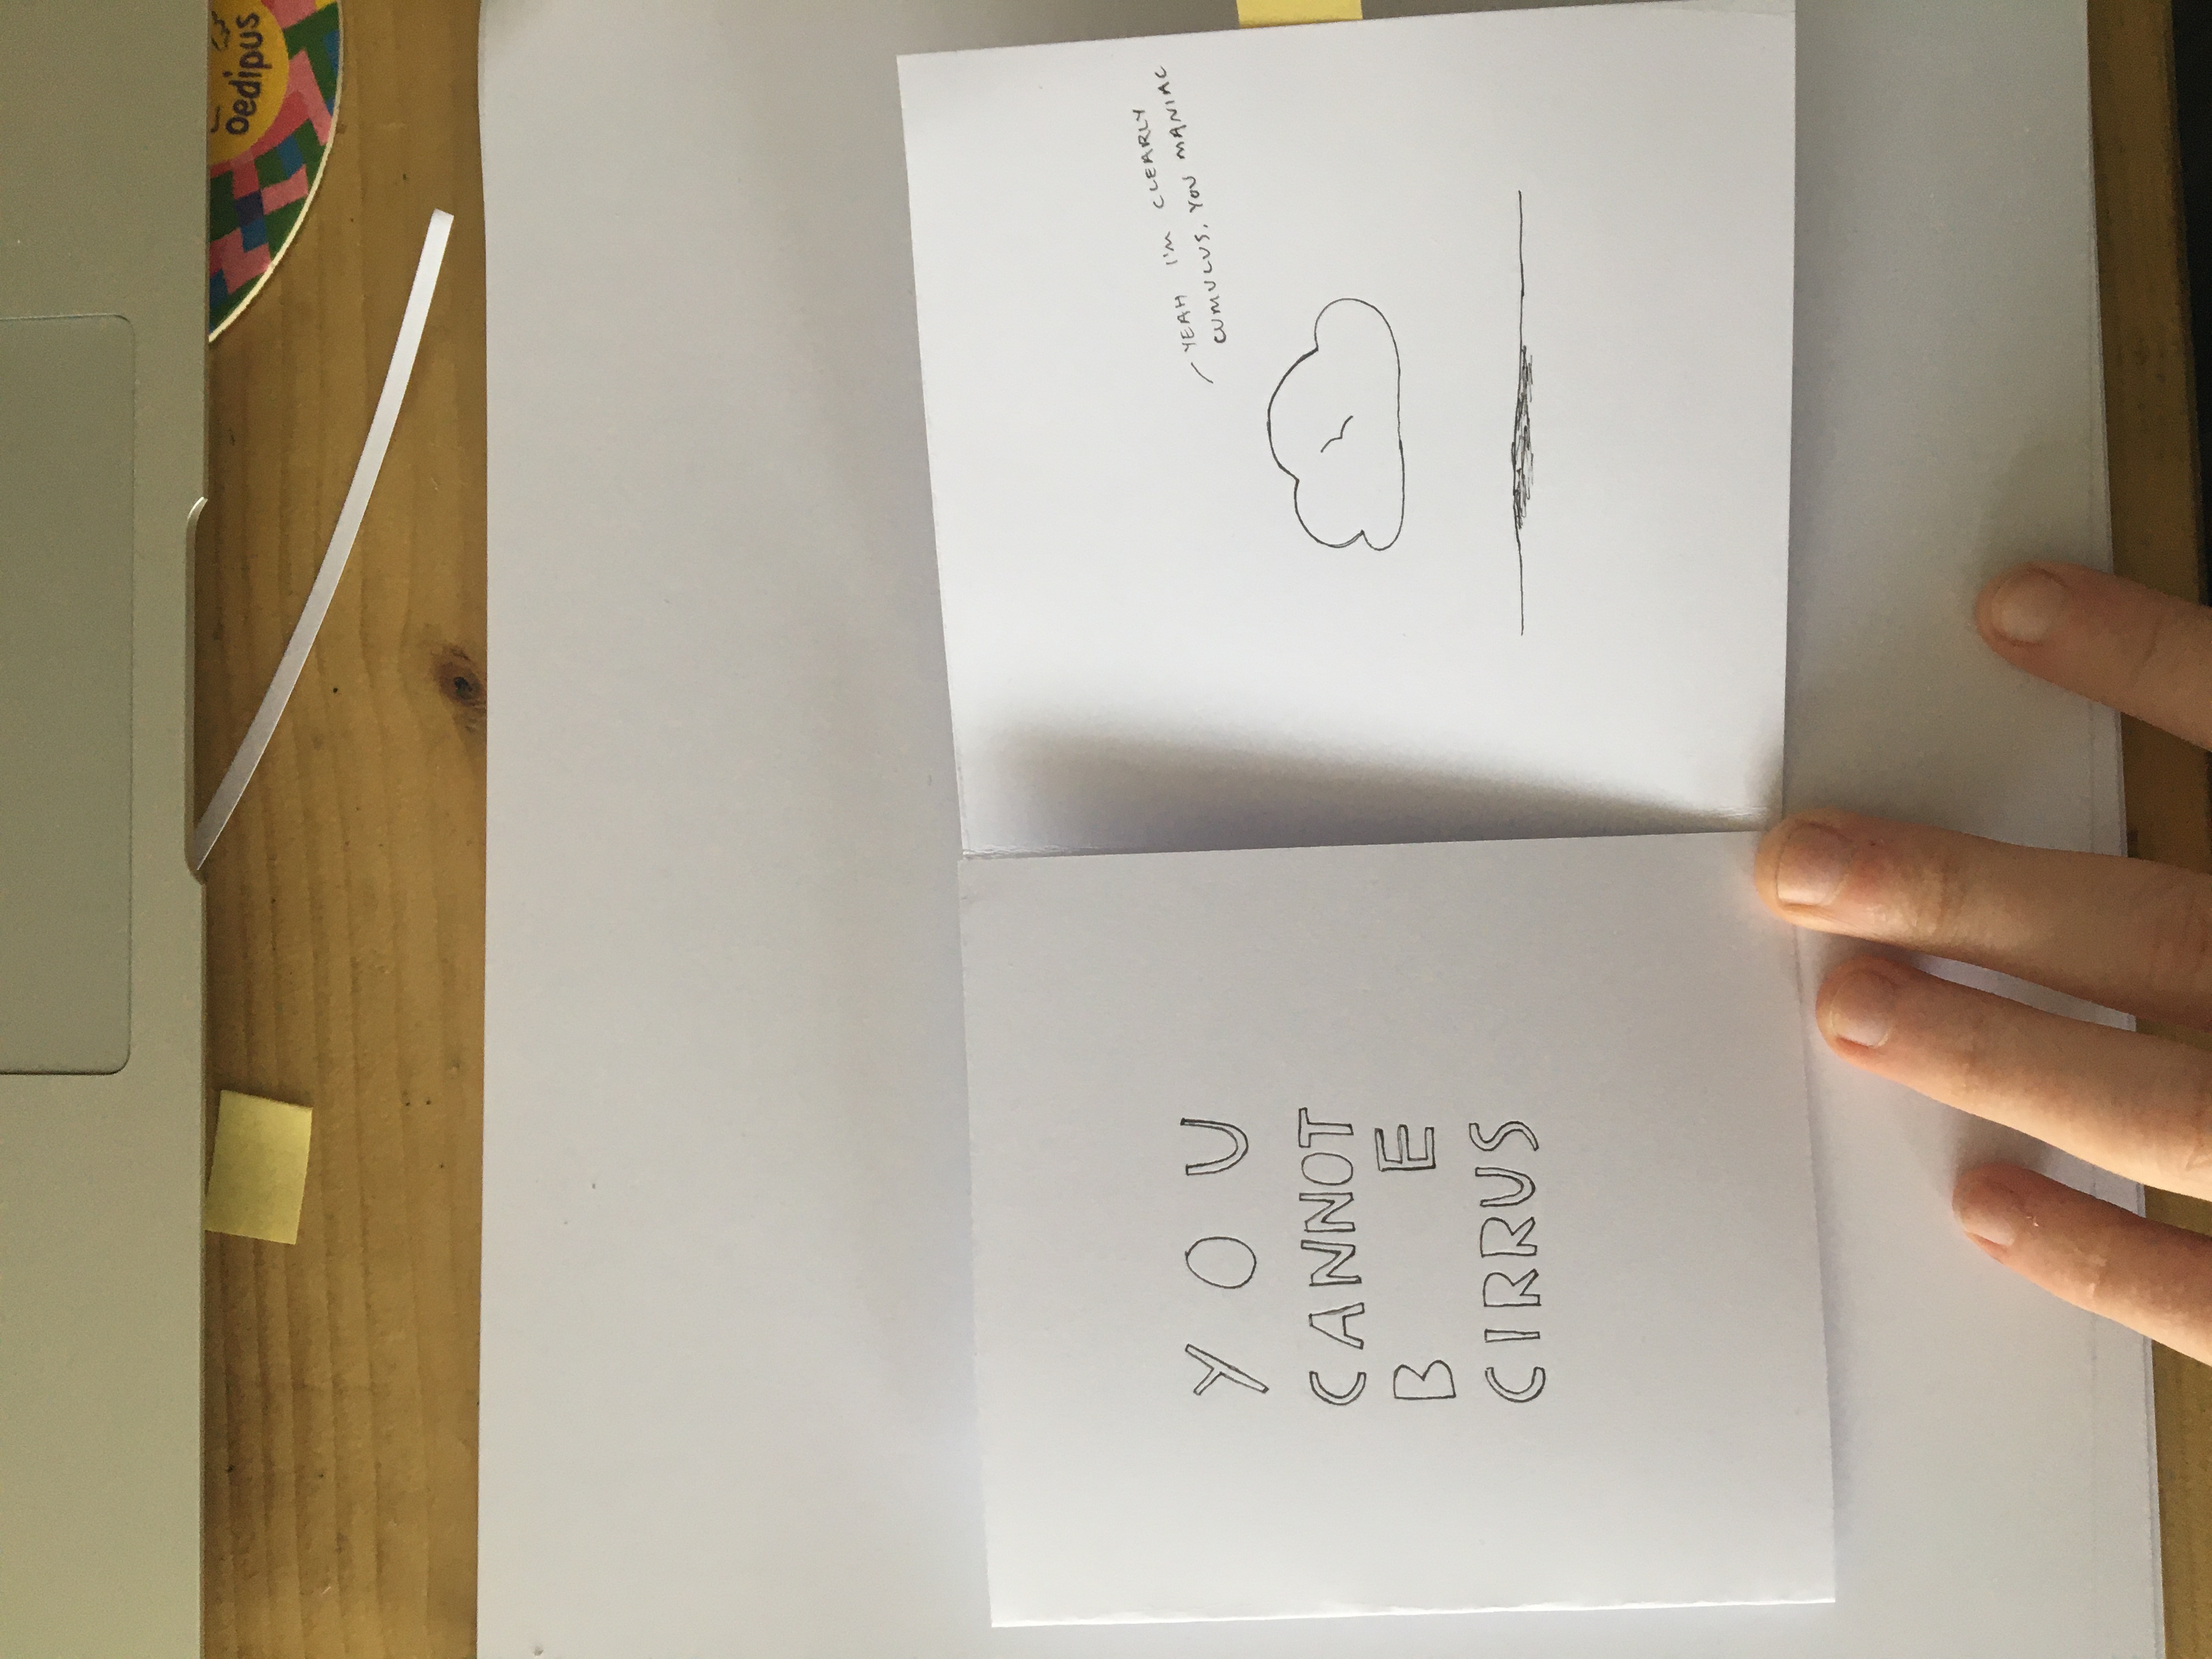 oedipus
YOU
CANNOT
BE
CIRRUS
YEAH I'M CLEARLY
CUMULUS, YOU MANIAC